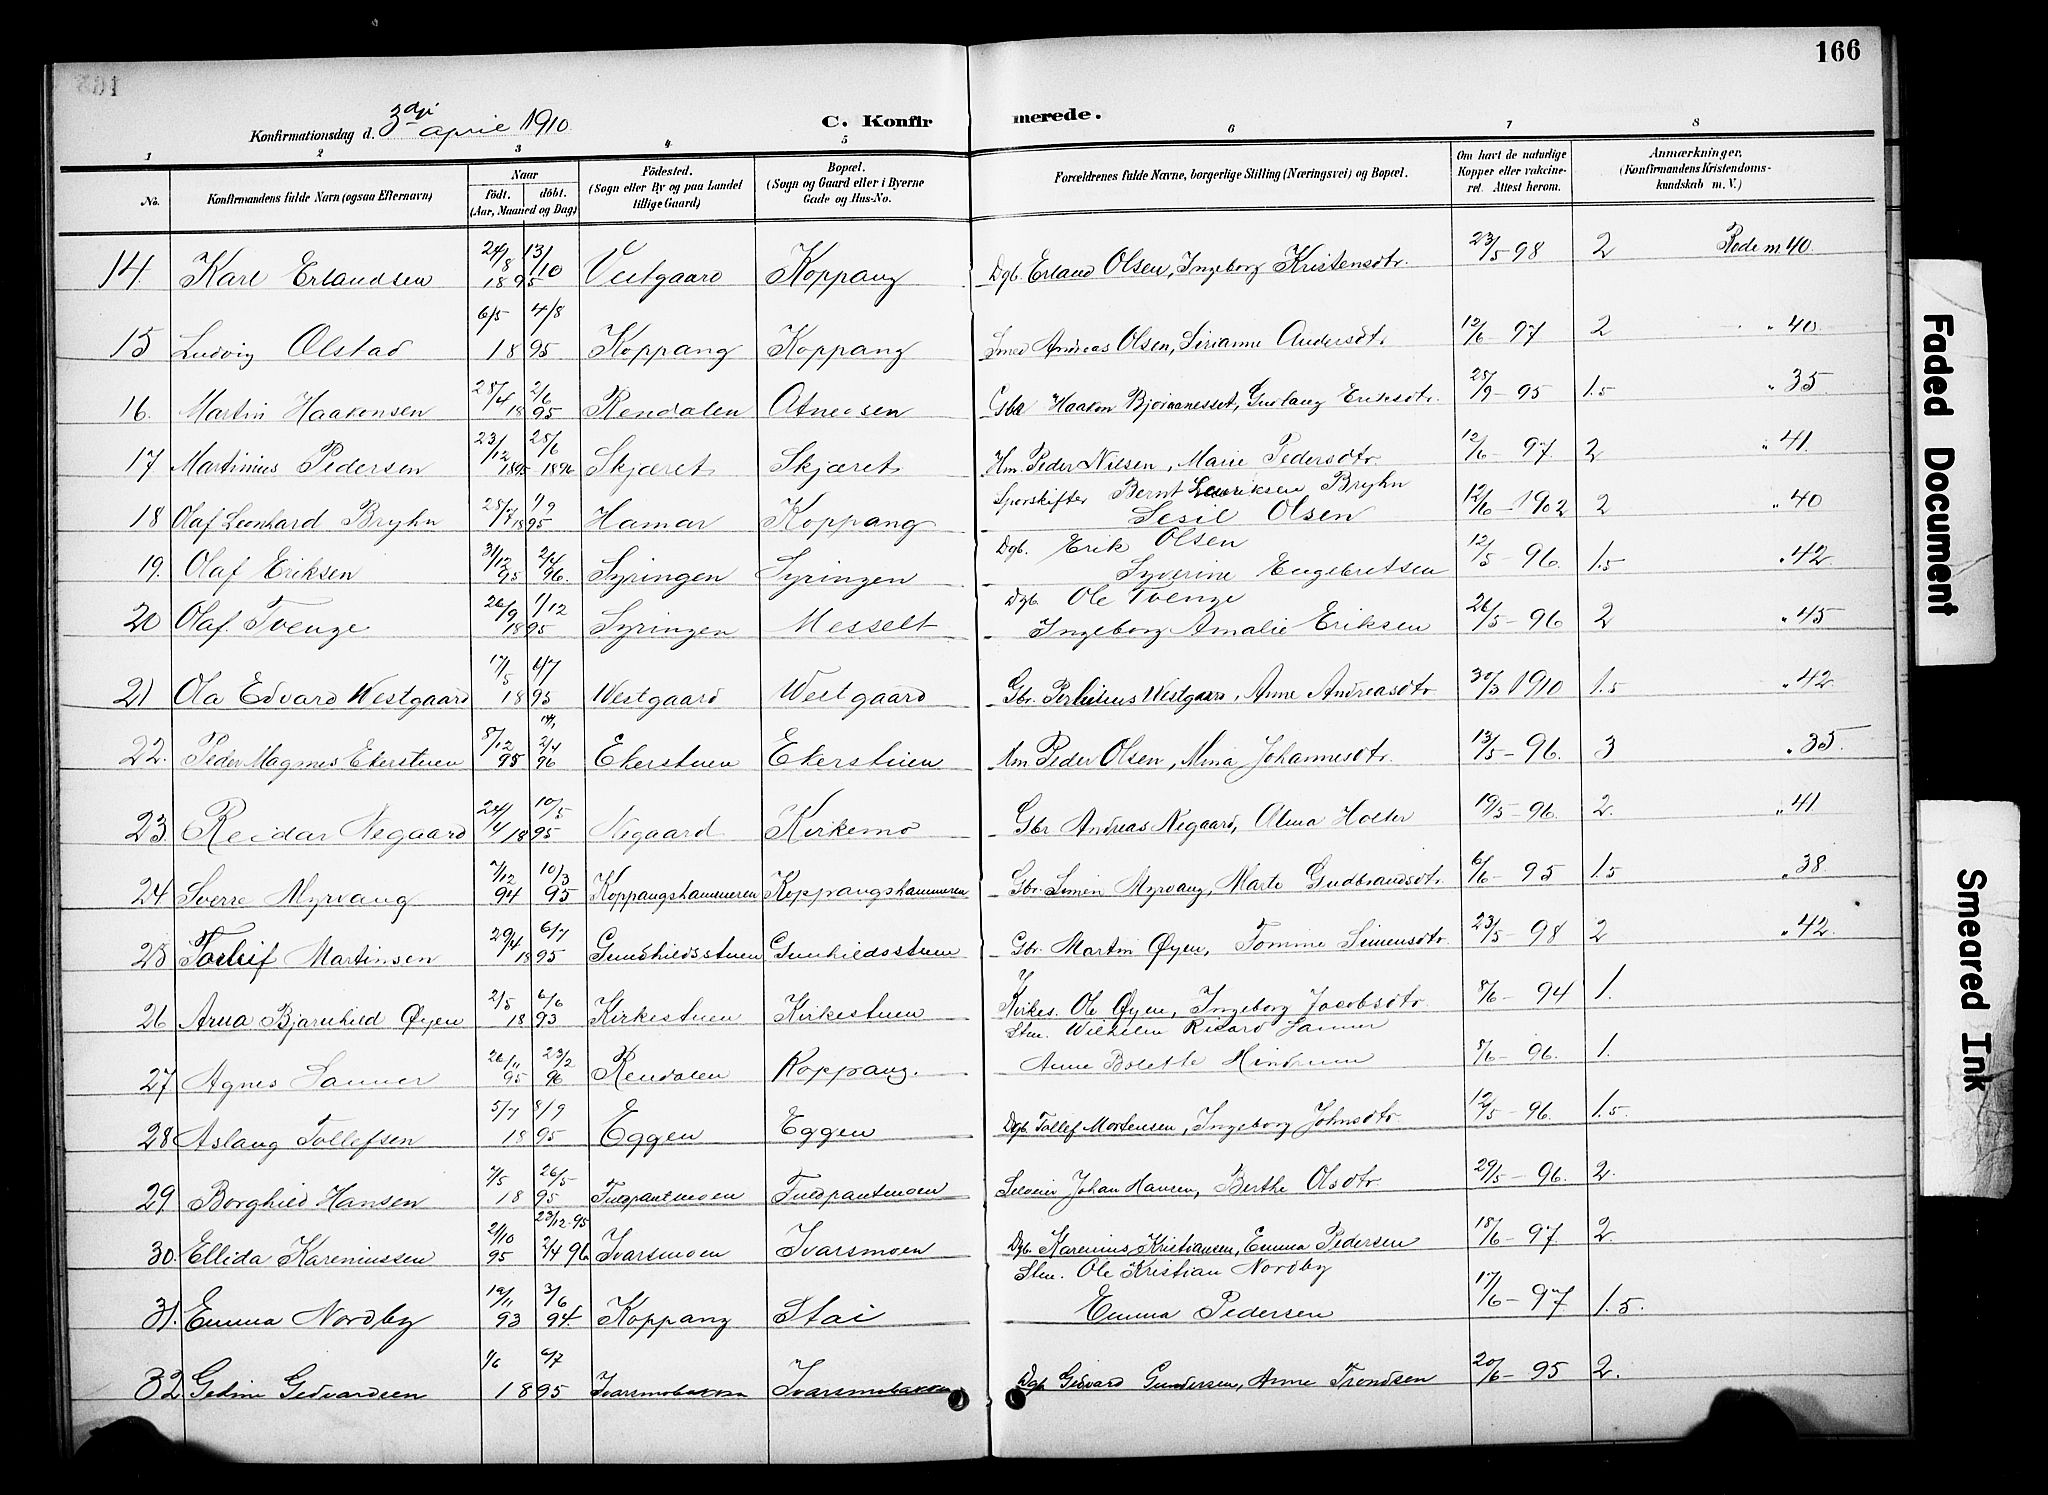 166
Konfirmationsdag d. 3die April 1910.
C. Konfirmerede.
1 2 3 4 5 6 7 8
No.
Konfirmandens fulde Navn (ogsaa Efternavn)
Naar født. døbt. (Aar, Maaned og Dag)
Fødested. (Sogn eller By og paa Landet tillige Gaard)
Bopæl. (Sogn og Gaard eller i Byerne Gade og Hus-No.
Forældrenes fulde Navne, borgerlige Stilling (Næringsvei) og Bopæl.
Om havt de naturlige Kopper eller vaccineret. Attest herom.
Anmærkninger. (Konfirmandens Kristendomskundskab m. V.)
14. Karl Erlandsen 24/8 13/10 1895 Vestgaard Koppang Dgb. Erland Olsen, Ingeborg Kristensdtr. 23/5 98 2 Rode m 40
15 Ludvig Olstad 6/5 4/8 1895 Koppang Koppang Smed Andreas Olsen, Sirianne Andersdtr 12/6 - 97 2 " 40
16. Martin Haakensen 28/4 2/6 1895 Rendalen Atneosen Gbr Haakon Bjørnnesset, Gudlaug Eriksdtr. 28/9 - 95 1.5 " 35
17 Martinius Pedersen 23/12 25/6 1895 Skjæret Skjæret Hm. Peder Nilsen, Marie Pedersdtr. 12/6 - 97. 2 " 41
18 Olaf Leonhard Bryhn 28/7 1/9 1895 Hamar Koppang Sporskifter Bernt Lauriksen Bryhn
Sesil Olsen 12/6 - 1902 2 " 40
19. Olaf Eriksen 31/12 95 2/4 96. Syringen Syringen Dgb. Erik Olsen
Syverine Engebretsen 12/5 - 96. 1.5 " 42
20 Olaf Tvenge 26/9 1/12 1895 Syringen Messelt Dgb. Ole Tvenge
Ingeborg Amalie Eriksen 26/5 - 96 2 " 45
21 Ola Edvard Westgaard 17/5 6/7 1895 Westgaard Westgaard Gbr. Westgaard, Anne Andreasdtr 30/3 1910 1.5 " 42
22. Peder Magnus Ekerstuen 8/12 95 2/4 96 Ekerstuen Ekerstuen Peder Olsen, Mina Johannesdtr. 13/5 - 96. 3 " 35.
23. Reidar Negaard 24/4 10/5 1895 Negaard Kirkemo Gbr Andreas Negaard, Alma Holter 19/5 - 96. 2. " 41
24 Sverre Myrvang 7/12 94 10/3 95 Koppangshammeren Koppangshammeren Gbr. Simen Myrvang, Marte Gudbrandsdtr. 6/6 - 95 1.5 " 38.
25 Torleif Martinsen 29/4 6/7 1895 Gunhildsstuen Gunhildsstuen Gbr. Martin Øyen, Tomme Simensdtr. 23/5 - 98 2 " 42.
26 Arna Bjarnhild Øyen 2/5 6/6 1893 Kirkestuen Kirkestuen Kirkes. Ole Øyen, Ingeborg Jacobsdtr. 8/6 - 94 1.
27. Agnes Sanner 26/11 95 23/2 96 Rendalen Koppang. Stm. Wilhelm Rikard Sanner
Anne Bolette Hindrum 8/6 - 96. 1.
28 Aslaug Tollefsen 5/7 8/9 1895 Eggen Eggen Dgb. Tollef Mortensen, Ingeborg Johnsdtr. 12/5 - 96. 1.5.
29 Borghild Hansen 7/5 26/5 1895 Fuldpantmoen Fuldpantmoen Johan Hansen, Berthe Olsdtr. 29/5 - 96. 2.
30. Ellida Kareniussen 21/10 95 23/12-95 2/4 96 Ivarsmoen Ivarsmoen Dgb. Karenius Kristiansen, Emma Pedersen 18/6 - 97. 2.
31. Emma Nordby 19/11 93 3/6 94. Koppang Stai Stm. Ole Kristian Nordby
Emma Pedersen 17/6 - 97 1.5.
32 Gedine Gedvardsen 1/6 6/7 1895 Ivarsmobakken Ivarsmobakken Dgb Gedvard Gundersen, Anne Trondsen 20/6 - 95 2.
Faded Document
Smeared Ink